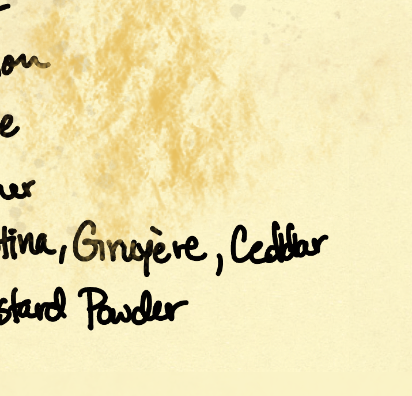 on
e
er
tina, Gruyère, Ceddar
stard Powder